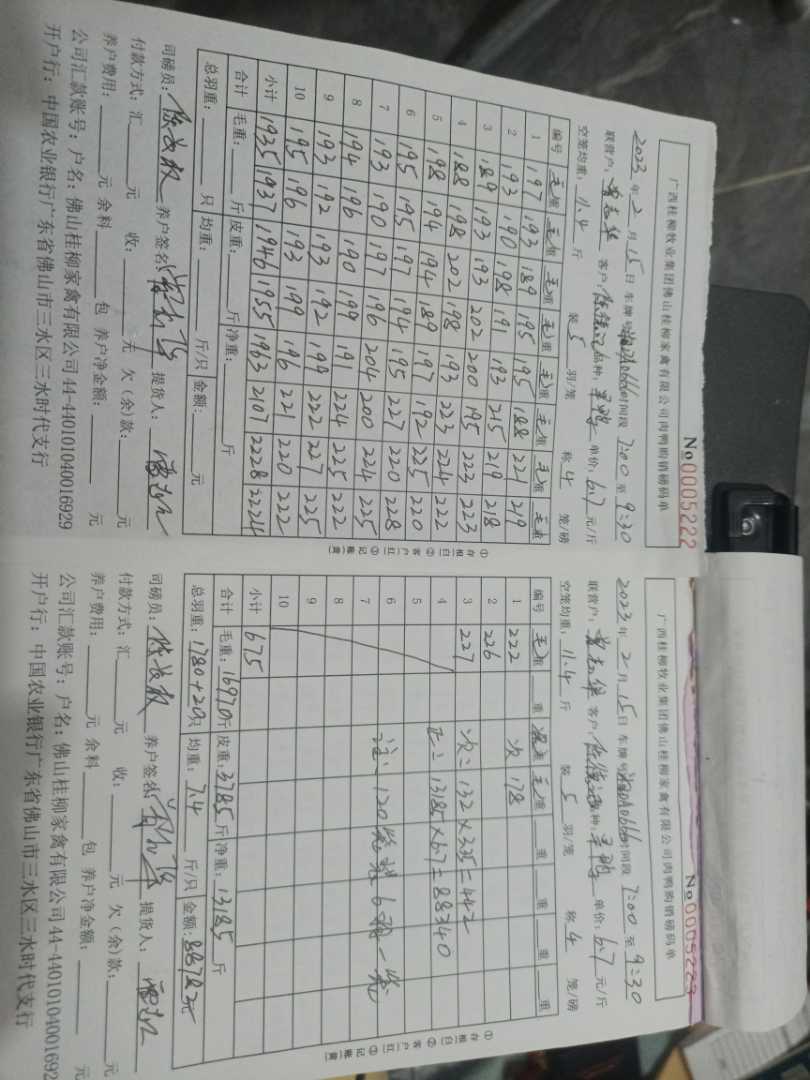 广西桂柳牧业集团佛山桂柳家禽有限公司肉鸭购销磅码单
No 0005222
2023年2月15日 车牌号 时间段 7:00至9:30
联营户: 客户: 品种: 单价:6.7元/斤
空笼均重:11.4斤 装5羽/笼 称4笼/磅
编号 毛重 毛重 毛重 毛重 毛重 毛重 毛重 毛重
1 197 193 189 195 195 188 221 219
2 193 190 198 191 193 215 219 218
3 189 193 193 202 200 195 223 223
4 188 198 202 198 193 223 224 222
5 198 194 194 189 197 192 225 220
6 195 195 197 194 195 227 220 228
7 193 190 197 196 204 200 224 225
8 194 196 190 199 191 224 225 222
9 193 192 193 192 199 222 227 225
10 195 196 193 199 196 221 220 222
小计 1935 1937 1946 1955 1963 2107 2228 2224
合计 毛重:____斤 皮重:____斤 净重:____斤
总羽重:____只 均重:____斤/只 金额:____元
司磅员: 养户签名: 提货人:
付款方式:汇____元 收:____元 欠(余)款:____元
养户费用:____元 余料____包 养户净金额:____元
公司汇款账号:户名:佛山桂柳家禽有限公司 44-440101040016929
开户行:中国农业银行广东省佛山市三水区三水时代支行
①存根(白) ②客户(红) ③记账(黄)
广西桂柳牧业集团佛山桂柳家禽有限公司肉鸭购销磅码单
No 0005223
2023年2月15日 车牌号 时间段 7:00至9:30
联营户: 客户: 品种: 单价:6.7元/斤
空笼均重:11.4斤 装5羽/笼 称4笼/磅
编号 毛重 __重 毛重 __重 __重 __重 __重
1 222 次 178
2 226
3 227 次=132×3.35=442
4 正=13185×6.7=88340
5
6 注: 120笼 6 一笼
7
8
9
10
小计 675
合计 毛重:16970斤 皮重:3785斤 净重:13185斤
总羽重:1780+20只 均重:7.4斤/只 金额:88782元
司磅员: 养户签名: 提货人:
付款方式:汇____元 收:____元 欠(余)款:____元
养户费用:____元 余料____包 养户净金额:____元
公司汇款账号:户名:佛山桂柳家禽有限公司 44-44010104001692
开户行:中国农业银行广东省佛山市三水区三水时代支行
①存根(白) ②客户(红) ③记账(黄)